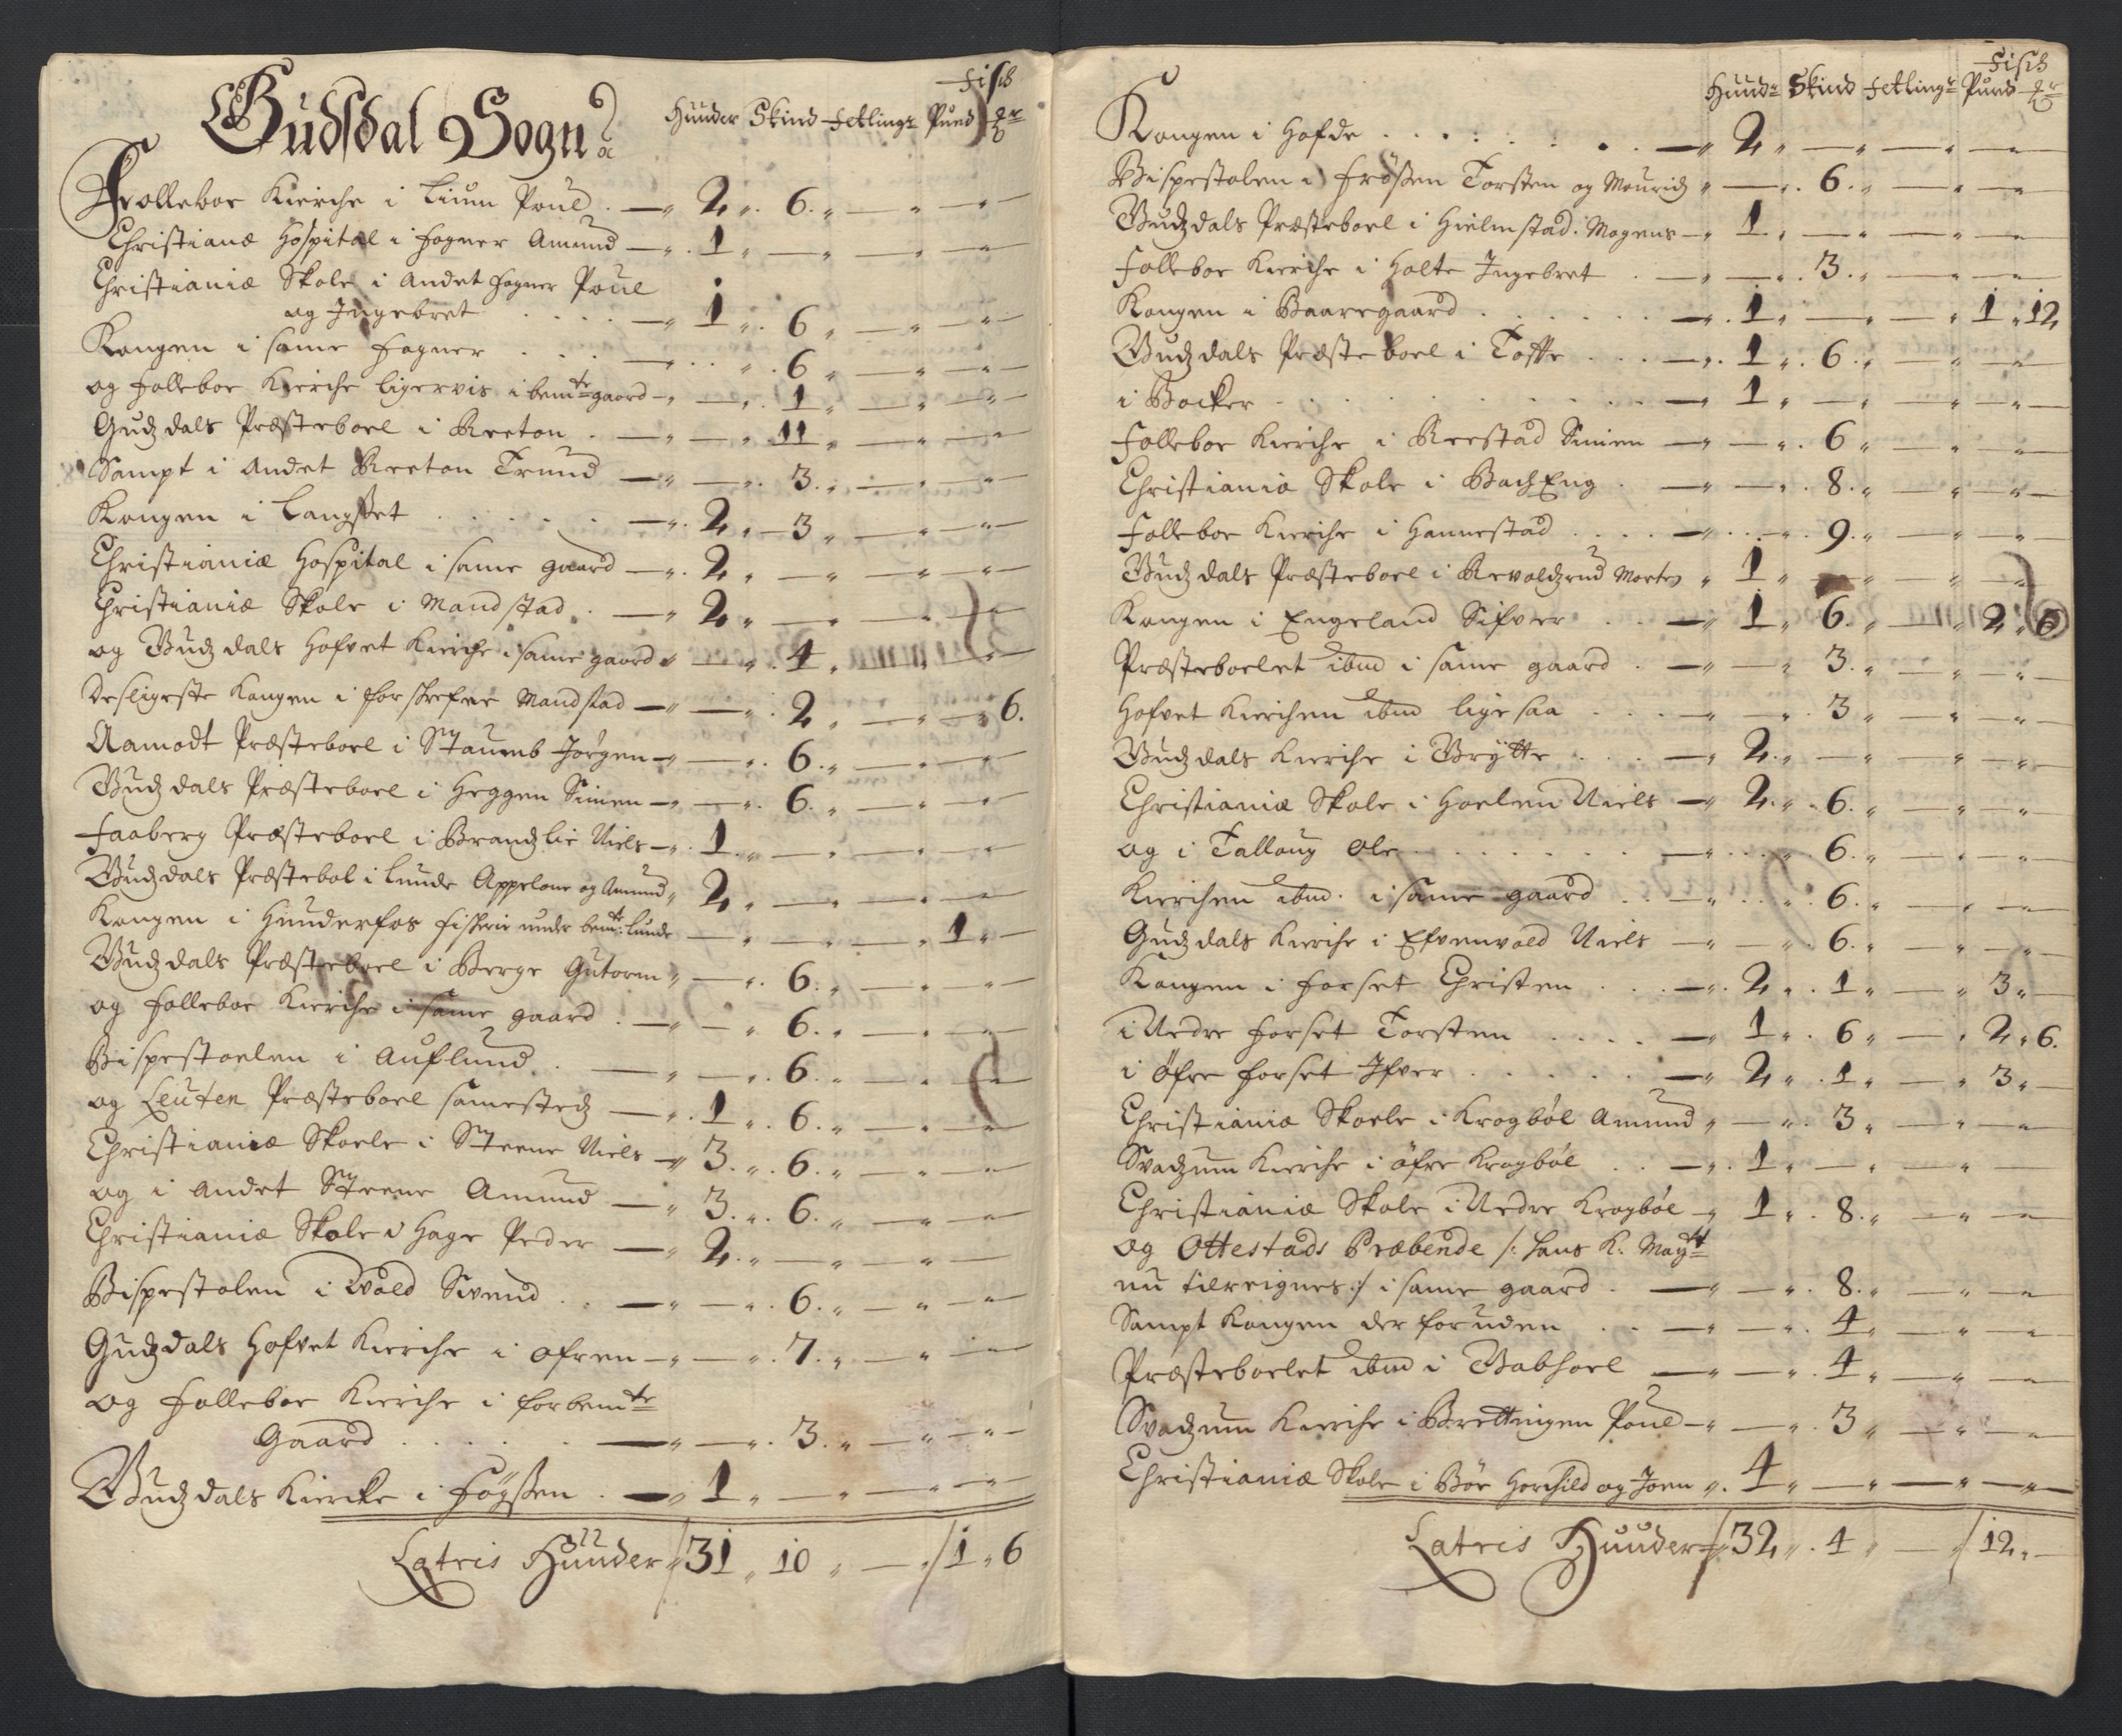 Fisch
Gudsdal Sogn
Huuder Skind Fetlingr Pund
Folleboe Kierche i Lium Poul . — 2 „ . 6 . „ — „ — „ —
Christianæ Hospital i Fogner Amund — „ . 1 „ — „ — „ — „ —
Christianiæ Skole i Andet Fogner Poul
og Ingebret . . . . — „ 1 „ . 6 „ — „ — „ —
Kongen i same Fogner . . . — „ . . „ . 6 „ — „ — „ —
og Folleboe Kierche ligervis i bemte gaard — „ — „ . 1 „ — „ — „ —
Gudzdals Præsteboel i Reeton . — „ — „ 11 „ — „ — „ —
Sampt i Andet Reeton Trund — „ — „ . 3 . „ — „ — „ —
Kongen i Langset . . . . . — „ . 2 „ — 3 „ — „ — „ —
Christianiæ Hospital i same gaard — „ . 2 „ — „ — „ — „ —
Christianiæ Skole i Mandstad . — „ 2 „ — „ — „ — „ —
og Gudzdals Hofvet Kierche i same gaard „ — „ . 4 „ — „ — „ —
Desligeste Kongen i forschrefne Mandstad — „ — „ . 2 „ — „ — „ 6 .
Aamodt Præsteboel i Stauemb Jørgen — „ — „ . 6 . „ — „ — „ —
Gudzdals Præsteboel i Heggen Simen — „ — „ . 6 . „ — „ — „ —
Faaberg Præsteboel i Brandlie Niels — „ . 1 . „ — „ — „ — „ —
Gudzdals Præstebol i Lunde Appelone og Amund „ 2 „ — „ — „ — „ —
Kongen i Hunderfos fischerie under bemte: Lunde — „ — „ — „ 1 „ —
Gudzdals Præsteboel i Berge Gutorm „ — „ . 6 . „ — „ — „ —
og Folleboe Kierche i same gaard . — „ — „ . 6 . „ — „ — „ —
Bispestoelen i Auflund . . — „ — „ . 6 . „ — „ — „ —
og Leuten Præsteboel samestedz — „ . 1 „ . 6 . „ — „ — „ —
Christianiæ Skoele i Steene Niels — „ 3 . „ . 6 . „ — „ — „ —
og i Andet Steene Amund — „ 3 . „ . 6 . „ — „ — „ —
Christianiæ Skole i Hage Peder — „ 2 . „ — „ — „ — „ —
Bispestolen i Wold Svend . . — „ — „ . 6 . „ — „ — „ —
Gudzdals Hofvet Kierche i Ofren — „ — „ . 7 . „ — „ — „ —
og Folleboe Kierche i forbemte
Gaard . . . . . — „ — „ . 3 . „ — „ — „ —
Gudzdals Kiercke i Føyssen . — „ 1 „ — „ — „ — „ —
Latris Huuder „ 31 „ 10 „ — „ / 1 „ 6
Fisch
Huudr Skind Fetlingr Pund
Kongen i Hofde . . . . . . . — „ 2 „ — „ — „ — „ —
Bispestolen i Frøssen Torsten og Mouridz „ — „ . 6 . „ — „ — „ —
Gudzdals Præsteboel i Hielmstad Mogens — „ 1 „ — „ — „ — „ —
Folleboe Kierche i Holte Ingebret . — „ — „ . 3 . „ — „ — „ —
Kongen i Baaregaard . . . . . — „ . 1 „ — „ — „ 1 „ 12
Gudzdals Præsteboel i Tofte . . — „ . 1 „ . 6 . „ — „ — „ —
i Bocker . . . . . . . . — „ 1 „ — „ — „ — „ —
Folleboe Kierche i Reestad Simen — „ — „ . 6 „ — „ — „ —
Christiania Skole i Bach Eng . — „ — „ . 8 . „ — „ — „ —
Folleboe Kierche i Hannestad . . . — „ . . „ . 9 . „ — „ — „ —
Gudzdals Præsteboel i Revoldzrud Morten „ 1 „ — „ — „ — „ —
Kongen i Engeland Sifver . . — „ 1 „ 6 . „ — „ 2 „ 6
Præsteboelet ibm i same gaard . — „ — „ 3 . „ — „ — „ —
Hofvet Kierchen ibm lige saa . . . — „ — „ . 3 „ — „ — „ —
Gudzdals Kierche i Brytte . . . — „ 2 . „ — „ — „ — „ —
Christianiæ Skole i Hoelen Niels — „ 2 . „ . 6 . „ — „ — „ —
og i Talloug Ole . . . . . . — „ . . „ . 6 . „ — „ — „ —
Kierchen ibm. i same gaard . . — „ . . „ . 6 . „ — „ — „ —
Gudzdals Kierche i Efvenvold Niels — „ — „ . 6 . „ — „ — „ —
Kongen i Forset Christen . . . — „ . 2 „ . 1 „ — „ 3 „ —
i Nedre Forset Torsten . . . . — „ 1 „ . 6 „ — „ 2 „ 6 .
i Øfre Forset Ifver . . . . . — „ 2 „ . 1 „ — „ 3 „ —
Christianiæ Skoele i Krogbøl Amund „ — „ . 3 „ — „ — „ —
Svadzum Kierche i Øfre Krogbøl . . — „ . 1 „ — „ — „ — „ —
Christianiæ Skole i Nedre Krogbøl — „ 1 „ . 8 . „ — „ — „ —
og Ottestads Præbende /: Hans K: Maytt
nu tilreignes :/ i same gaard . — „ — „ . 8 . „ — „ — „ —
Sampt Kongen der foruden . . — „ — „ . 4 „ — „ — „ —
Præsteboelet ibm i Babhoel — „ — „ . 4 „ — „ — „ —
Svadzum Kierche i Brettingen Poul — „ — „ . 3 „ — „ — „ —
Christianiæ Skole i Bøe Horchild og Joen „ . 4 „ — „ — „ — „ —
Latris Huuder „ 32 „ . 4 „ — „ / 12 „ —